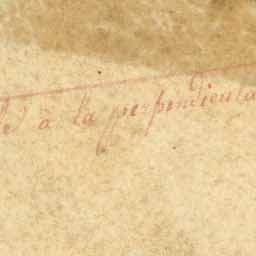 à la perpendicula